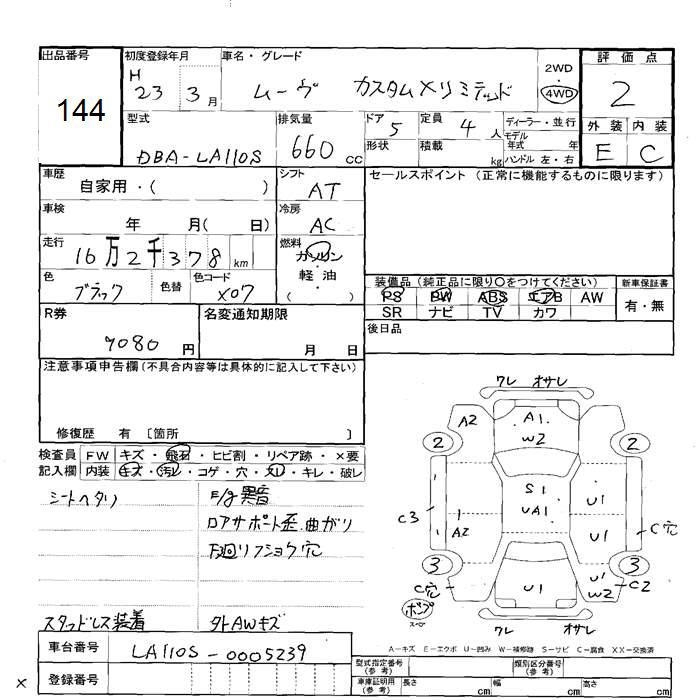 出品番号
144
初度登録年月
H 23 3月
車名・グレード
ムーヴ カスタムXリミテッド
2WD
・
4WD
評価点
2
外装 内装
E C
型式
DBA-LA110S
排気量
660 cc
ドア 5
定員 4 人
形状
積載 kg
ディーラー・並行
モデル
年式 年
ハンドル 左・右
車歴
自家用・( )
シフト
AT
セールスポイント (正常に機能するものに限ります)
車検
年 月( 日)
冷房
AC
走行
16万2千378km
燃料
ガソリン
・
軽・油
( )
色
ブラック
色替
色コード
X07
装備品 (純正品に限り○をつけてください)
新車保証書
PS PW ABS エアB AW
SR ナビ TV カワ
有・無
R券
7080 円
名変通知期限
月 日
後日品
注意事項申告欄(不具合内容等は具体的に記入して下さい)
修復歴 有 〔箇所 〕
検査員
記入欄
FW キズ・飛石・ヒビ割・リペア跡・×要
内装 キズ・汚レ・コゲ・穴・スレ・キレ・破レ
シートヘタリ
E/g異音
ロアサポート歪、曲がり
下廻リフショク穴
スタッドレス装着
外AWキズ
ワレ オサレ
A2
A1
W2
2
2
S1
UA1
U1
C3
A2
U1
C穴
3
3
C穴
U1
U1
W2
C2
ボンプ
ワレ オサレ
A-キズ E-エクボ U-凹み W-補修跡 S-サビ C-腐食 XX-交換済
車台番号
LA110S-0005239
登録番号
×
型式指定番号
(参考)
類別区分番号
(参考)
車庫証明用
(参考)
長さ cm
幅 cm
高さ cm